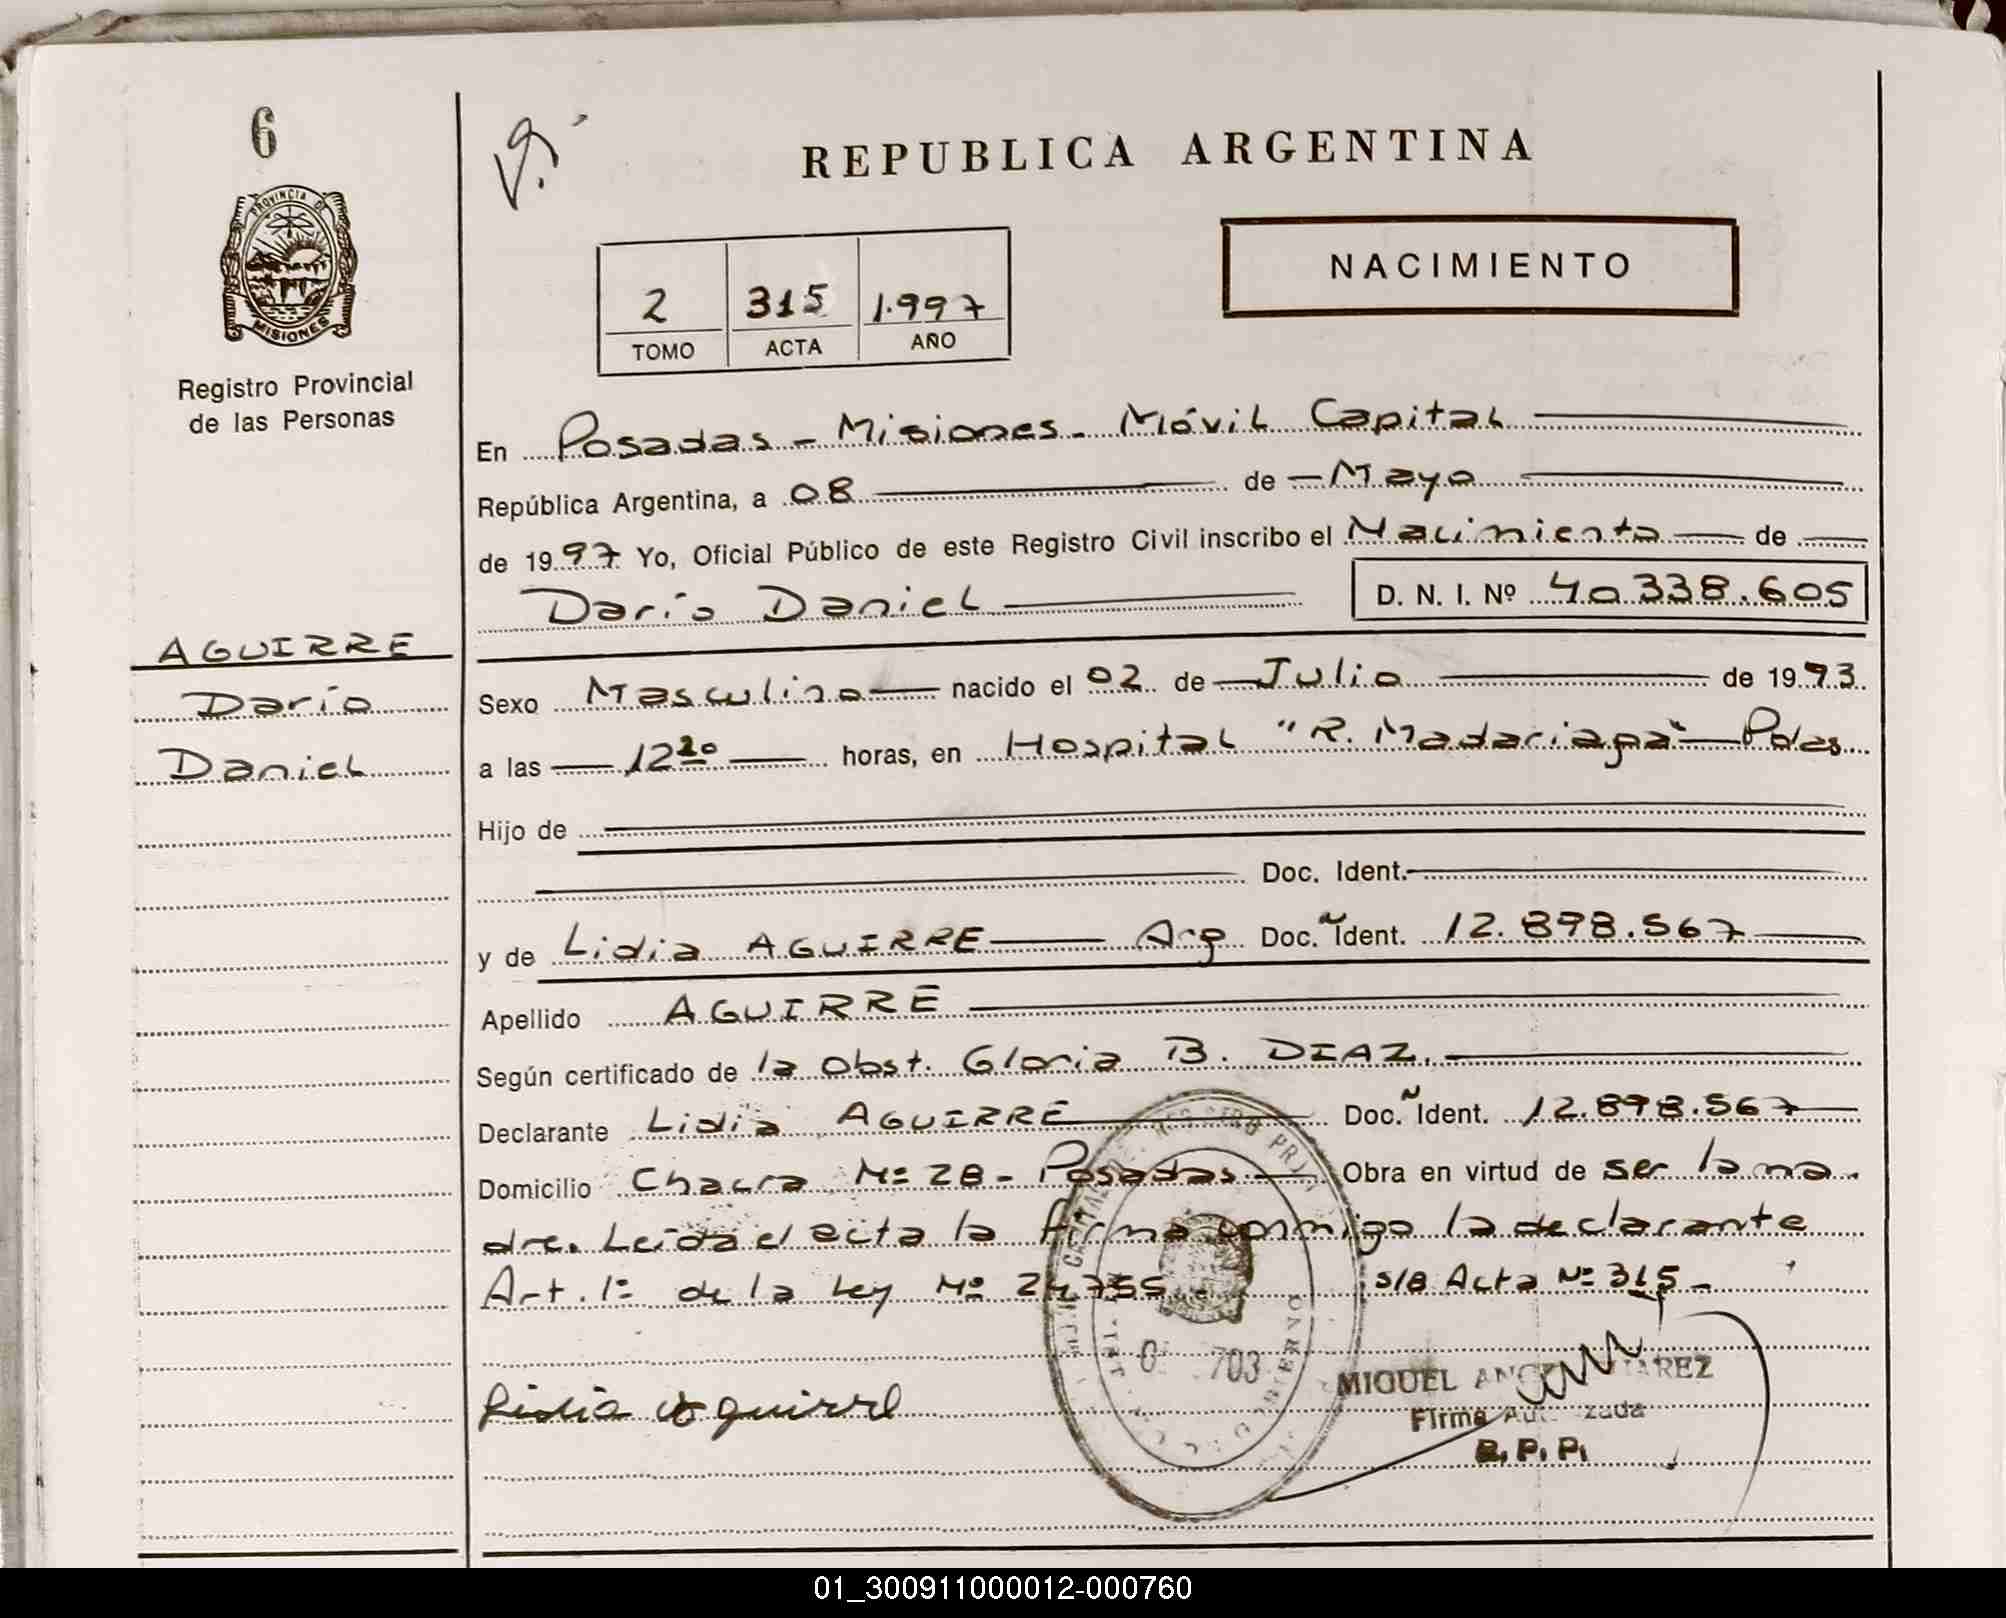 6
REPUBLICA ARGENTINA
PROVINCIA DE
MISIONES
Registro Provincial
de las Personas
NACIMIENTO
2 315 1.997
TOMO ACTA AÑO
En Posadas - Misiones - Móvil Capital
República Argentina, a 08 de Mayo
de 1997 Yo, Oficial Público de este Registro Civil inscribo el Nacimiento de
Darío Daniel D. N. I. Nº 40.338.605
AGUIRRE
Darío
Daniel
Sexo Masculino nacido el 02 de Julio de 1993
a las 12 20 horas, en Hospital "R. Madariaga" Pdas
Hijo de
Doc. Ident.
y de Lidia AGUIRRE Arg Doc. Ident. 12.898.567
Apellido AGUIRRE
Según certificado de la Obst. Gloria B. DIAZ.
Declarante Lidia AGUIRRE Doc. Ident. 12.898.567
Domicilio Chacra Nº 28 - Posadas Obra en virtud de ser la ma
dre. Leida el acta la firma conmigo la declarante
Art. 1º de la Ley Nº 24.755 S/B Acta Nº 315 -
703
Lidia Aguirre
MIGUEL
Firma
R. P. P.
01_300911000012-000760